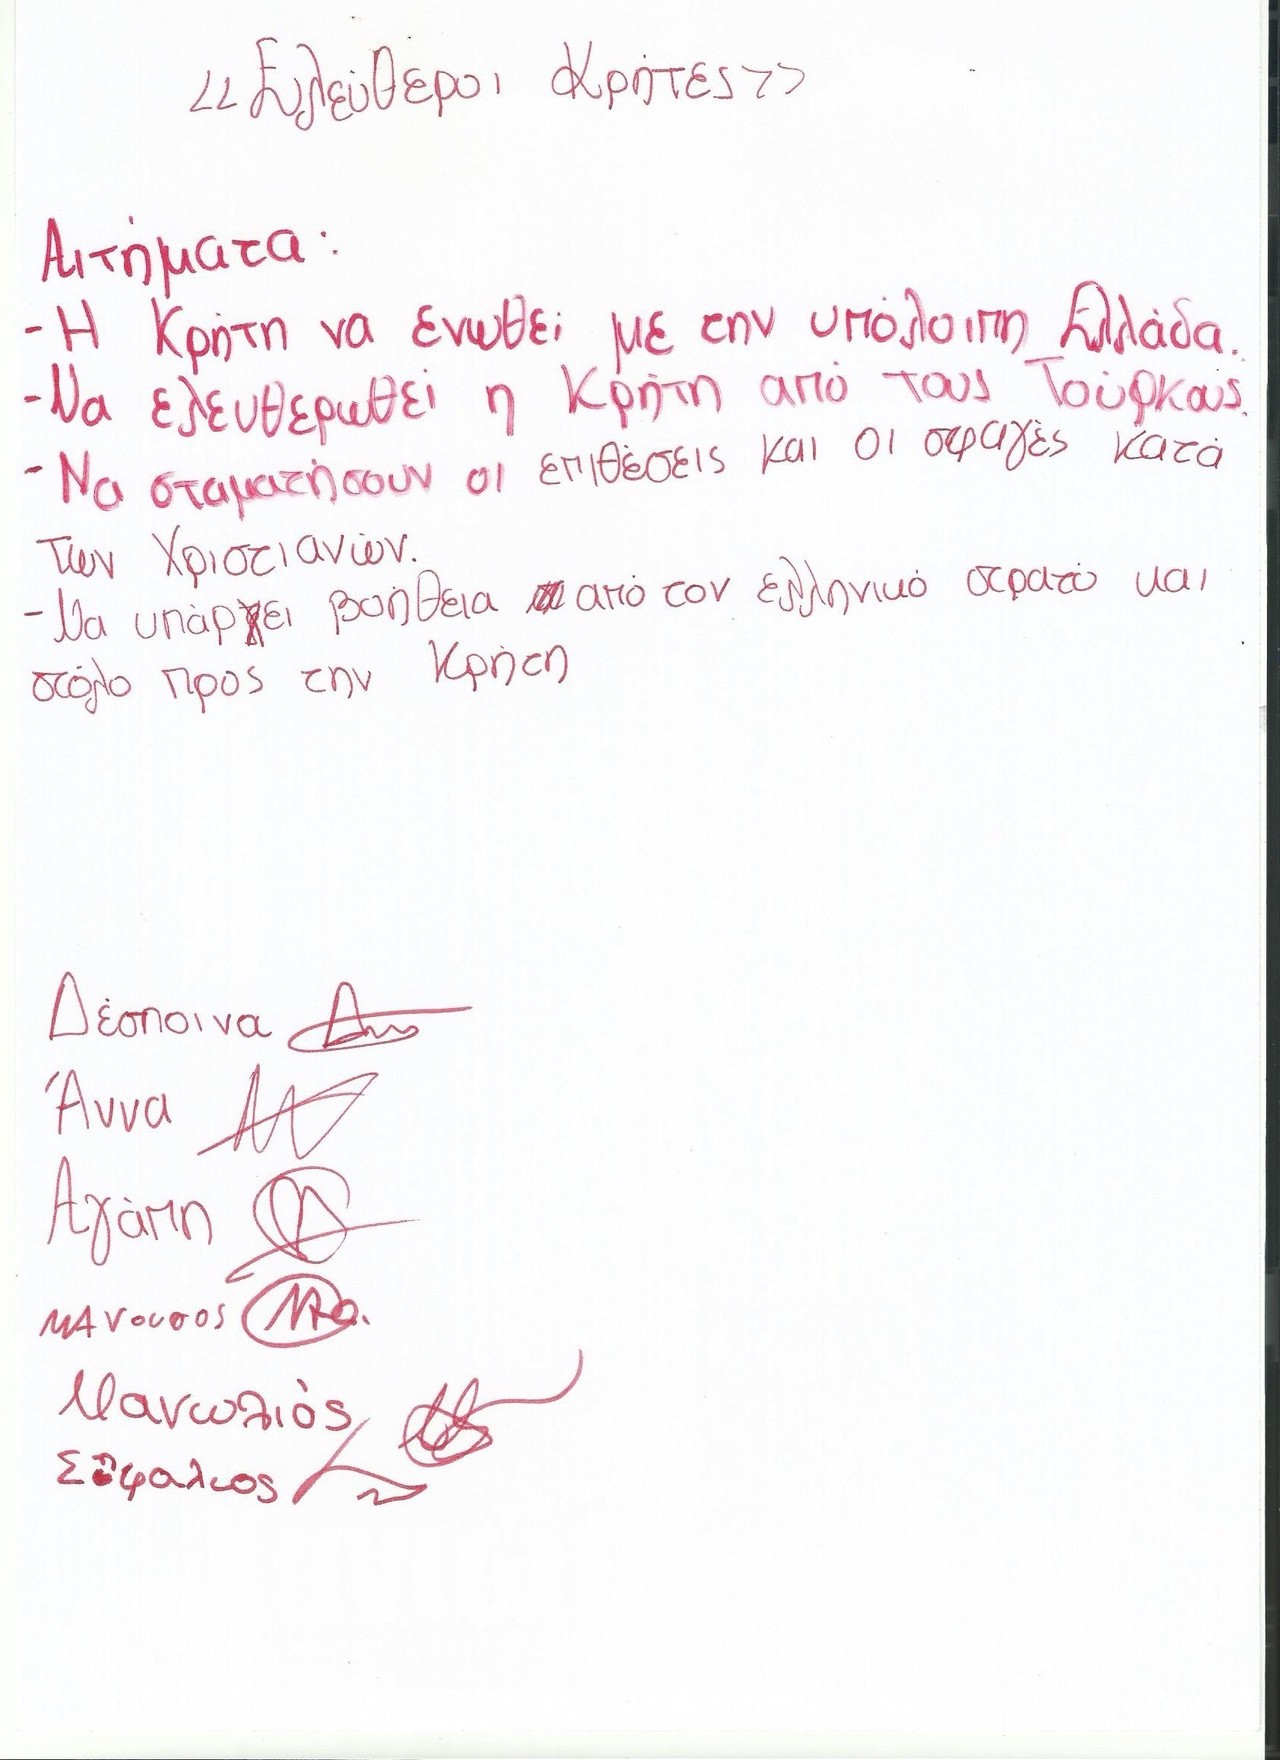 <<Ελεύθεροι Κρήτες>>
Αιτήματα:
- Η Κρήτη να ενωθεί με την υπόλοιπη Ελλάδα.
- Να ελευθερωθεί η Κρήτη από τους Τούρκους.
- Να σταματήσουν οι επιθέσεις και οι σφαγές κατά
των Χριστιανών.
- Να υπάρξει βοήθεια από τον ελληνικό στρατό και
στόλο προς την Κρήτη
Δέσποινα
Άννα
Αγάπη
ΜΑνουσος
Μανωλιός